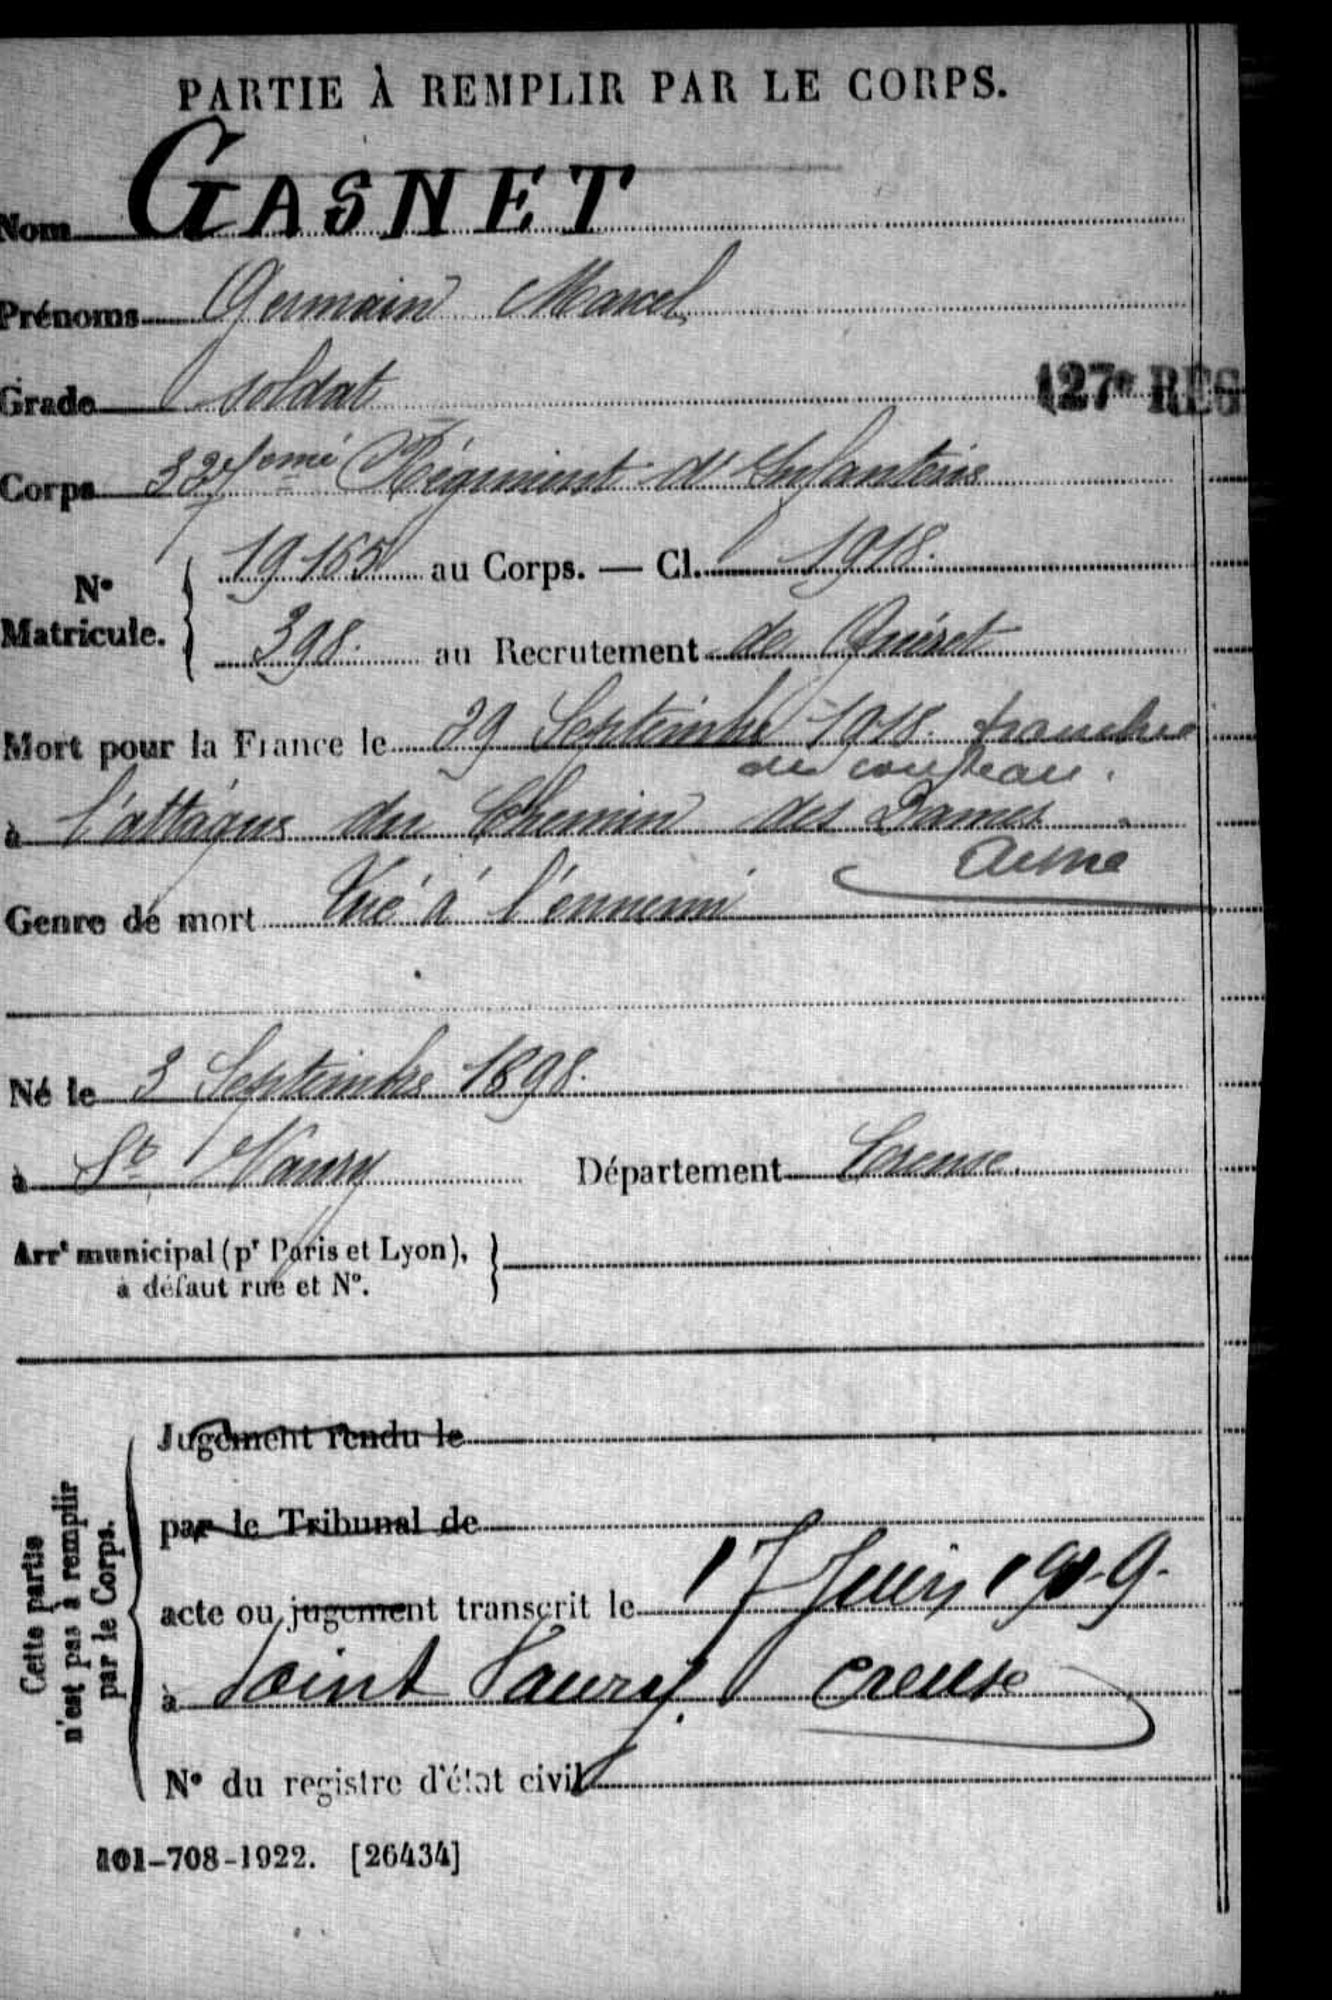 PARTIE À REMPLIR PAR LE CORPS.
Nom GASNET
Prénoms Germain Marcel
Grade soldat
127e REG
Corps 327ème Régiment d'Infanterie
N° Matricule. 19165 au Corps. — Cl. 1918.
398. au Recrutement de Guéret
Mort pour la France le 29 Septembre 1918. tranchée
du couteau.
à l'attaque du Chemin des Dames.
Aisne
Genre de mort Tué à l'ennemi
Né le 3 Septembre 1898.
à St Vaury Département Creuse.
Arrt municipal (pr Paris et Lyon),
à défaut rue et N°.
Cette partie
n'est pas à remplir
par le Corps.
Jugement rendu le
par le Tribunal de
acte ou jugement transcrit le 17 Juin 1919.
à Saint Vaury. Creuse
N° du registre d'état civil
101-708-1922. [26434]